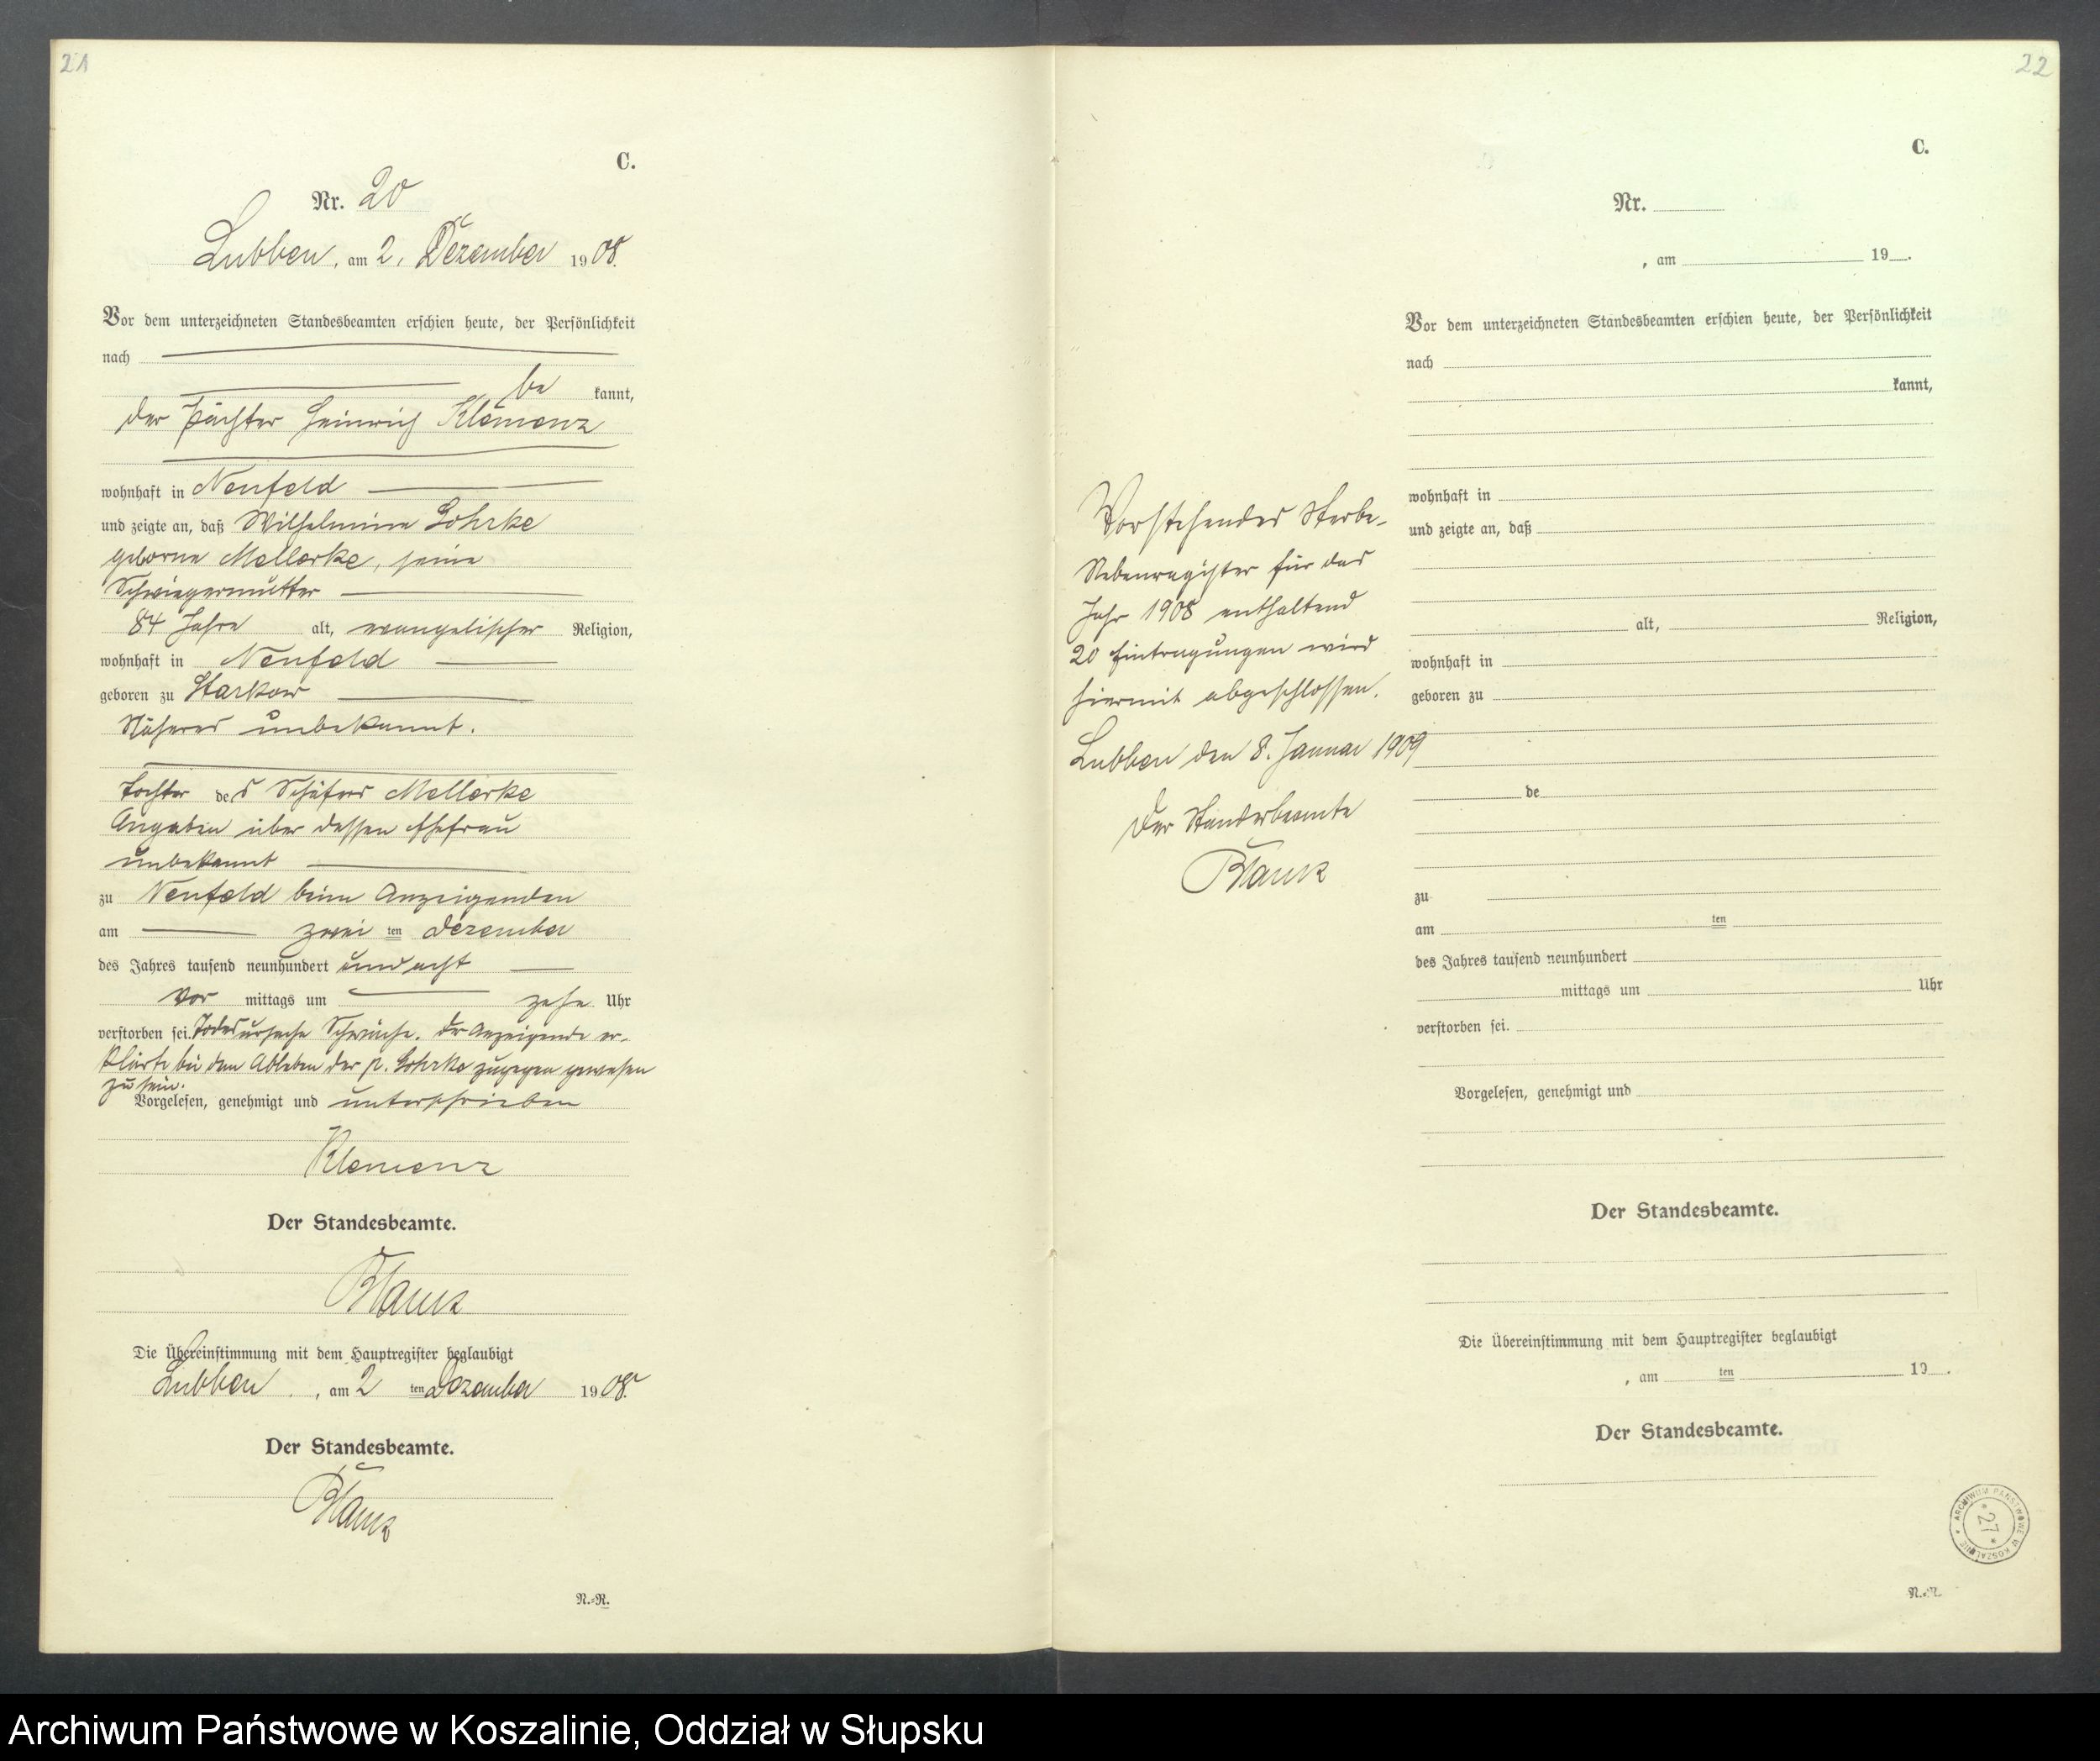 21
C.
Nr. 20
Lubben, am 2. Dezember 1908.
Vor dem unterzeichneten Standesbeamten erschien heute, der Persönlichkeit
nach
be kannt,
der Pächter Heinrich Klemenz
wohnhaft in Neufeld
und zeigte an, daß Wilhelmine Gohrke
geborne Mellerke, seine
Schwiegermutter
84 Jahre alt, evangelischer Religion,
wohnhaft in Neufeld
geboren zu Starkow
Näheres unbekannt.
Tochter des Schäfers Mellerke
Angaben über dessen Ehefrau
unbekannt
zu Neufeld beim Anzeigenden
am zwei ten Dezember
des Jahres tausend neunhundert und acht
Vor mittags um zehn Uhr
verstorben sei. Todesursache Schwäche. Der Anzeigende er-
klärte bei dem Ableben der p. Gohrke zugegen gewesen
zu sein.
Vorgelesen, genehmigt und unterschrieben
Klemenz
Der Standesbeamte.
Blank
Die Übereinstimmung mit dem Hauptregister beglaubigt
Lubben, am 2 ten Dezember 1908.
Der Standesbeamte.
Blank
N.-R.
22
C.
Nr.
, am 19 .
Vor dem unterzeichneten Standesbeamten erschien heute, der Persönlichkeit
nach
kannt,
wohnhaft in
und zeigte an, daß
alt, Religion,
wohnhaft in
geboren zu
de
zu
am ten
des Jahres tausend neunhundert
mittags um Uhr
verstorben sei.
Vorgelesen, genehmigt und
Der Standesbeamte.
Die Übereinstimmung mit dem Hauptregister beglaubigt
, am ten 19 .
Der Standesbeamte.
N.-R.
Vorstehendes Sterbe-
Nebenregister für das
Jahr 1908 enthaltend
20 Eintragungen wird
hiermit abgeschlossen.
Lubben den 8. Januar 1909
Der Standesbeamte
Blank
ARCHIWUM PAŃSTWOWE W KOSZALINIE
* 27 *
Archiwum Państwowe w Koszalinie, Oddział w Słupsku